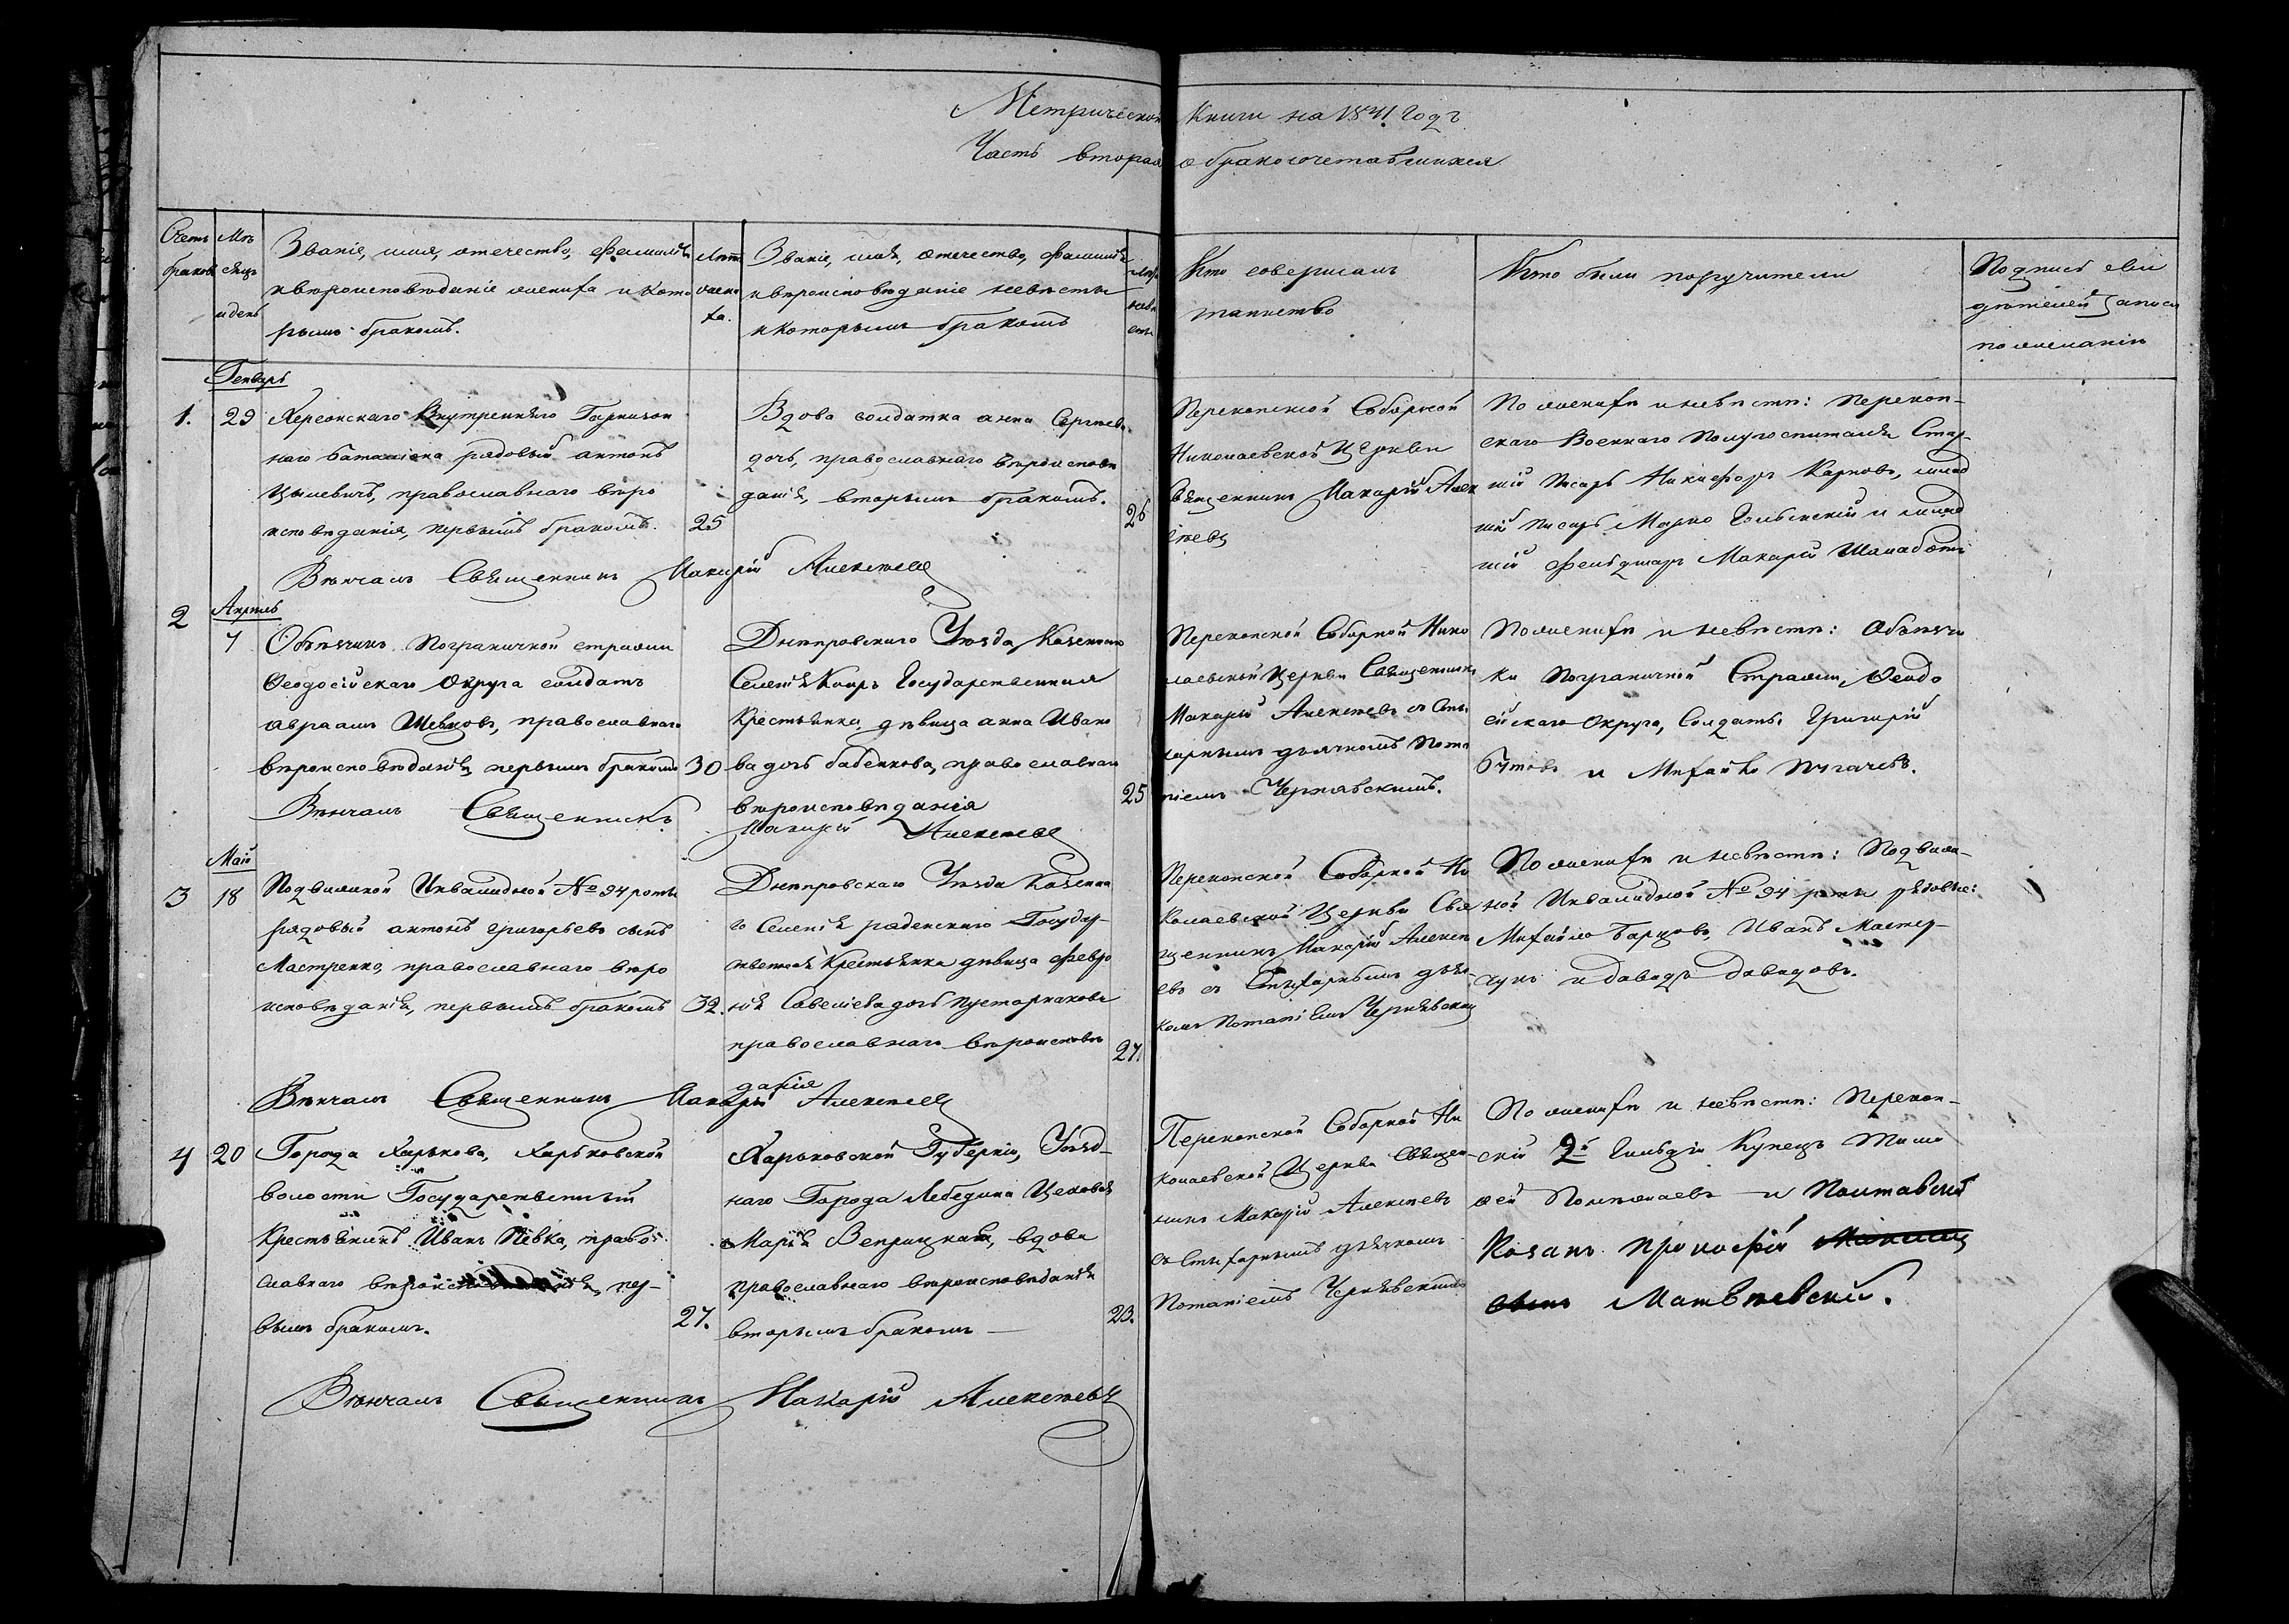 Метрической Книги на 1841 годъ
Часть вторая о бракосочетавшихся
Счетъ браковъ
Мѣсяцъ и день
Званіе, имя, отечество, фамилія
и вѣроисповѣданіе жениха и кото
рымъ бракомъ.
Лѣта жениха.
Званіе, имя, отечество, фамилія
и вѣроисповѣданіе невѣсты
и которымъ бракомъ
Лѣта невѣсты
Кто совершалъ
таинство
Кто были поручители
Подпись сви
дѣтелей записи
по желанію
Генварь
1.
29
Херсонскаго Внутренняго Гарнизон
наго баталіона рядовый антонъ
православнаго вѣро
исповѣданія, первымъ бракомъ.
25
Вдова солдатка анна Сергѣева
дочь, православнаго вѣроисповѣ
данія, вторымъ бракомъ.
26
Перекопской Соборной
Николаевской Церкви
Священникъ Макарій Алек
сѣевъ
По женихѣ и невѣстѣ: Перекоп-
скаго Военнаго Полугоспиталя Стар-
шій Писарь Никифоръ Карповъ, млад
шій писарь Марко и млад
шій фельдшеръ Макарій
Вѣнчалъ Священникъ Макарій Алексѣевъ
2
Апрель
7
Объѣзчикъ Пограничной стражи
Ѳеодосійскаго Округа солдатъ
авраамъ Шевцовъ, православнаго
вѣроисповѣданія, первымъ бракомъ
30
Днепровскаго Уѣзда, Казеннаго
Селенія Каиръ Государственная
Крестьянка дѣвица анна Ивано
ва дочь бабенкова, православнаго
вѣроисповѣданія
25
Перекопской Соборной Нико
лаевской Церкви Священникъ
Макарій Алексѣевъ съ Сти
харнымъ дьячкомъ Пота
піемъ Чернявскимъ.
По женихѣ и невѣстѣ: Объѣзчи
ки Пограничной Стражи, Ѳеодо
сійскаго Округа, Солдаты Григорій
Бутовъ и Михайло Пугачевъ.
Вѣнчалъ Священникъ Макарій Алексѣевъ
3
Май
18
Подвижной Инвалидной № 94 роты
рядовый антонъ григорьевъ сынъ
Мастренко, православнаго вѣро
исповѣданія, первымъ бракомъ
32.
Днепровскаго Уѣзда Казенна
го Селенія раденскаго Государ-
ственная Крестьянка дѣвица Февро
нія Савеліева дочь
православнаго вѣроисповѣ
данія
27.
Перекопской Соборной Ни
колаевской Церкви Свя
щенникъ Макарій Алексѣ
евъ съ Стихарнымъ дьяч
комъ Потапіемъ Чернявским
По женихѣ и невѣстѣ: Подвиж-
ной Инвалидной № 94 роты рядовые:
Михайло Барцовъ, Иванъ Мастер-
чукъ и давидъ давидовъ.
Вѣнчалъ Священникъ Макарій Алексѣевъ
4
20
Города Харькова, Харьковской
волости Государственный
Крестьянинъ Иванъ Пѣвка, право-
славнаго вѣроисповѣданія, пер-
вымъ бракомъ.
27.
Харьковской Губерніи, Уѣзд-
наго Города Лебедина Цеховая
Марія Веприцкая, вдова
православнаго вѣроисповѣданія
вторымъ бракомъ
23.
Перекопской Соборной Ни
колаевской Церкви Священ-
никъ Макарій Алексѣевъ
съ Стихарнымъ дьячкомъ
Потапіемъ Чернявскимъ
По женихѣ и невѣстѣ: Перекоп-
скій 2й Гильдіи Купецъ Тимо
ѳей и Полтавскій
Козакъ Прокофій
сынъ Матвѣевскій.
Вѣнчалъ Священникъ Макарій Алексѣевъ